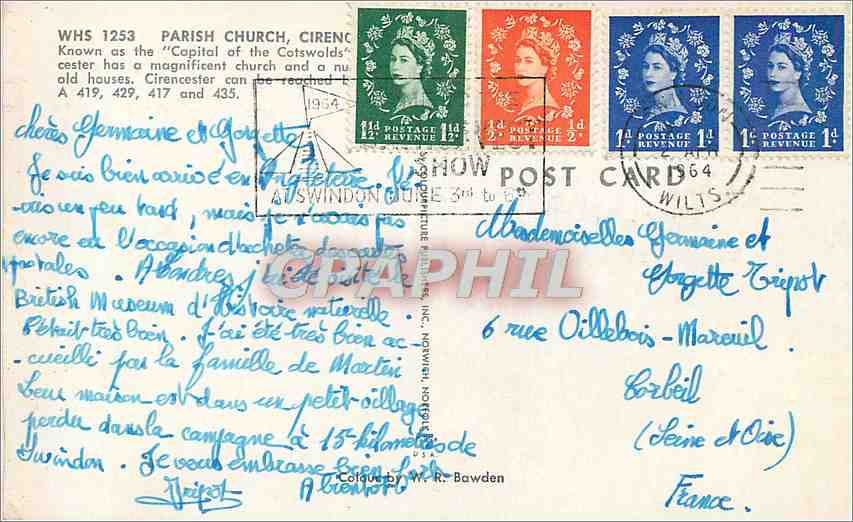 WHS 1253 PARISH CHURCH, CIRENC
Known as the "Capital of the Cotswolds"
cester has a magnificent church and a nu
old houses. Cirencester can be reached b
A 419, 429, 417 and 435.
1½d 1½d
POSTAGE
REVENUE
½d ½d
POSTAGE
REVENUE
1d 1d
POSTAGE
REVENUE
1d 1d
POSTAGE
REVENUE
1964
SHOW
AT SWINDON 3rd to 6th
1964
WILTS.
POST CARD
chères Germaine et Gorgette
Je suis bien arrivé en Angleterre. J'é-
cris un peu tard, mais je n'avais pas
encore eu l'occasion d'acheter des cartes
postales. A Londres j'ai visité le
British Museum d'Histoire naturelle.
C'était très bien. J'ai été très bien ac-
-cueilli par la famille de Martin
Leur maison est dans un petit village
perdu dans la campagne à 15 kilomètres de
Swindon. Je vous embrasse bien fort
A bientôt
Tripot
Mademoiselles Germaine et
Gorgette Tripot
6 rue Oillebois-Mareuil
Corbeil
(Seine et Oise)
France.
COLOURPICTURE PUBLISHERS, INC., NORWICH, NORFOLK
U.S.A.
Colour by W. R. Bawden
CPAPHIL